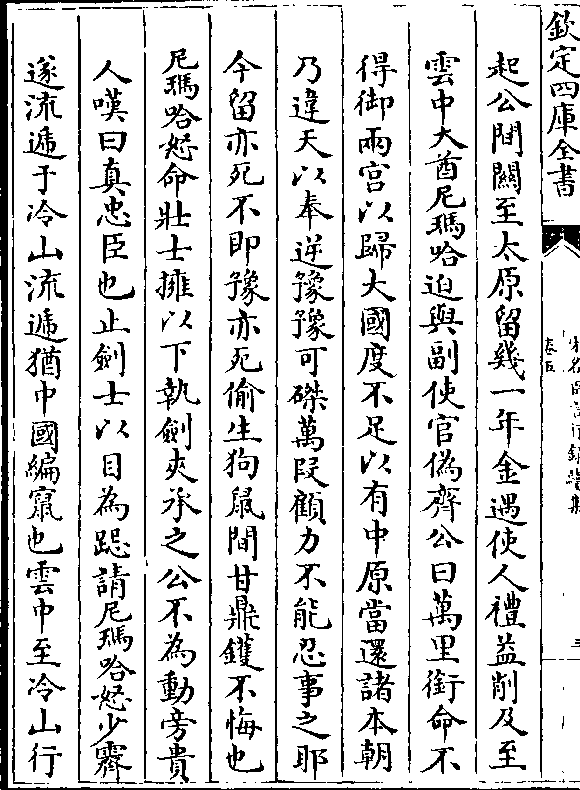 欽定四庫全書
起公間關至太原留幾一年金遇使人禮益削及至
雲中大酋尼瑪哈迫與副使官偽齊公曰萬里銜命不
得御兩宮以歸大國度不足以有中原當還諸本朝
乃違天以奉逆豫豫可磔萬段顧力不能忍事之耶
今留亦死不即豫亦死偷生狗鼠間甘鼎鑊不悔也
尼瑪哈怒命壯士擁以下執劍夾承之公不為動旁貴
人嘆曰真忠臣也止劍士以目為跽請尼瑪哈怒少霽
遂流遞于冷山流遞猶中國編竄也雲中至冷山行